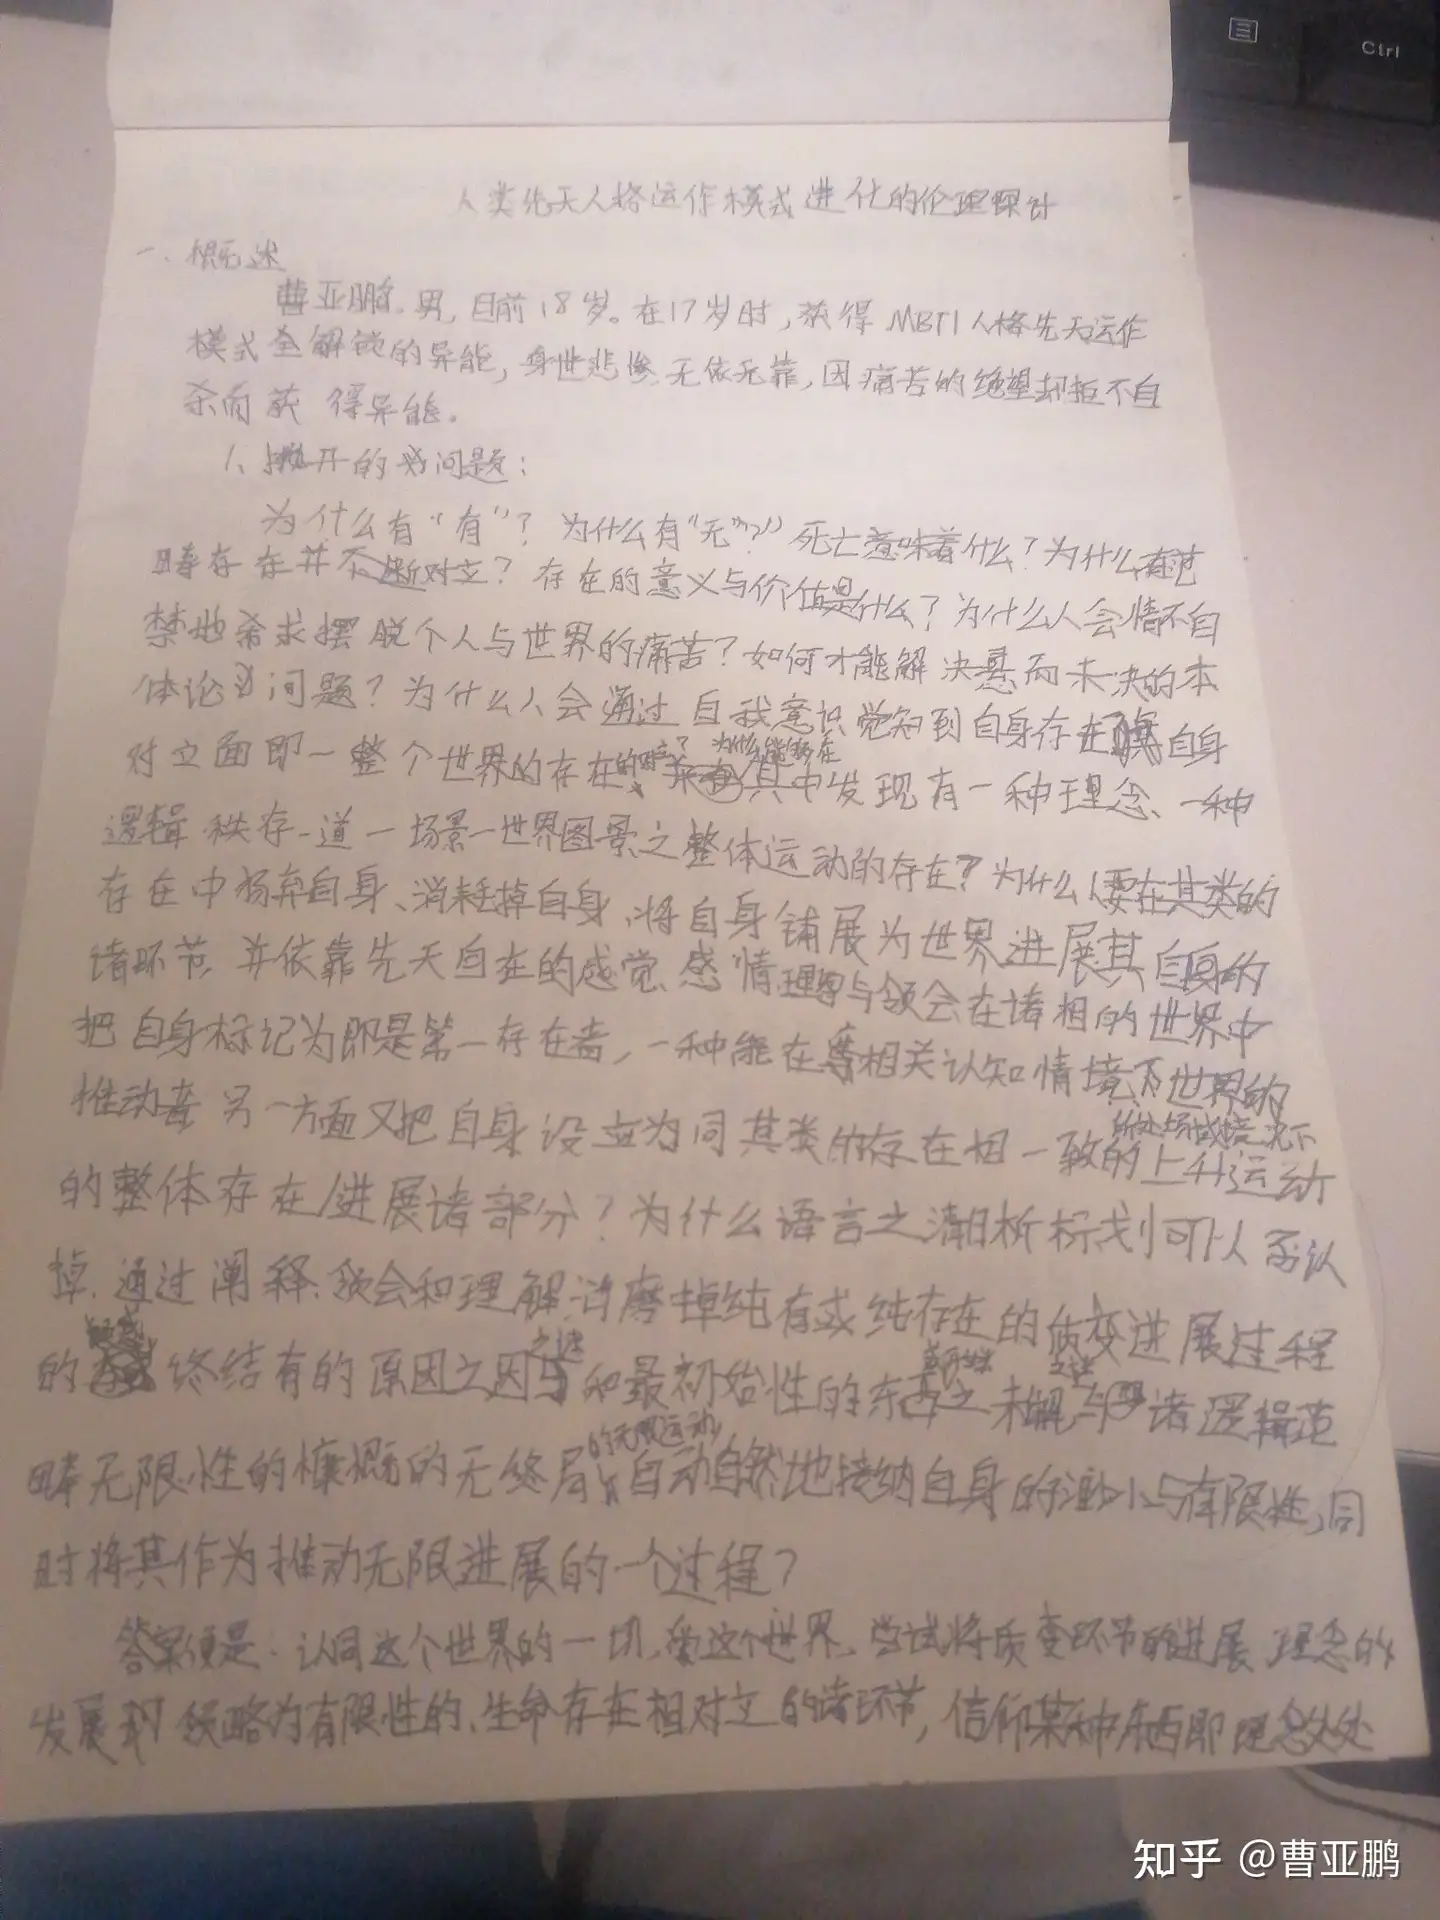 Ctrl
人类先天人格运作模式进化的伦理探讨
一、概述
曹亚鹏,男,目前18岁。在17岁时,获得MBTI人格先天运作
模式全解锁的异能,身世悲惨,无依无靠,因痛苦的绝望却拒不自
杀而获得异能。
1、开的问题:
为什么有“有”?为什么有“无”?死亡意味着什么?为什么有范
畴存在并不断对立?存在的意义与价值是什么?为什么人会情不自
禁地希求摆脱个人与世界的痛苦?如何才能解决悬而未决的本
体论问题?为什么人会通过自我意识觉知到自身存在自身
对立面即一整个世界的存在的 为什么能够在其中发现有一种理念、一种
逻辑秩存-道-场景-世界图景之整体运动的存在?为什么人要在其类的
存在中扬弃自身、消耗掉自身、将自身铺展为世界进展其自身的
诸环节,并依靠先天自在的感觉、感情、理与领会在诸相的世界中
把自身标记为即是第一存在者,一种能在相关认知情境下世界的
推动者另一方面又把自身设立为同其类的存在相一致的上升运动
的整体存在/进展诸部分?为什么语言之析标划可以否认
掉、通过阐释、领会和理解消磨掉纯有或纯存在的质变进展过程
的终结有的原因之因之谜和最初始性的东西之未解之谜与诸逻辑范
畴无限性的慷慨的无终局的无限运动自动自然地接纳自身的渺小与有限性,同
时将其作为推动无限进展的一个过程?
答案便是:认同这个世界的一切,爱这个世界,尝试将质变环节的进展理念的
发展领略为有限性的、生命存在相对立的诸环节,信仰某种东西即理念处处
知乎 @曹亚鹏